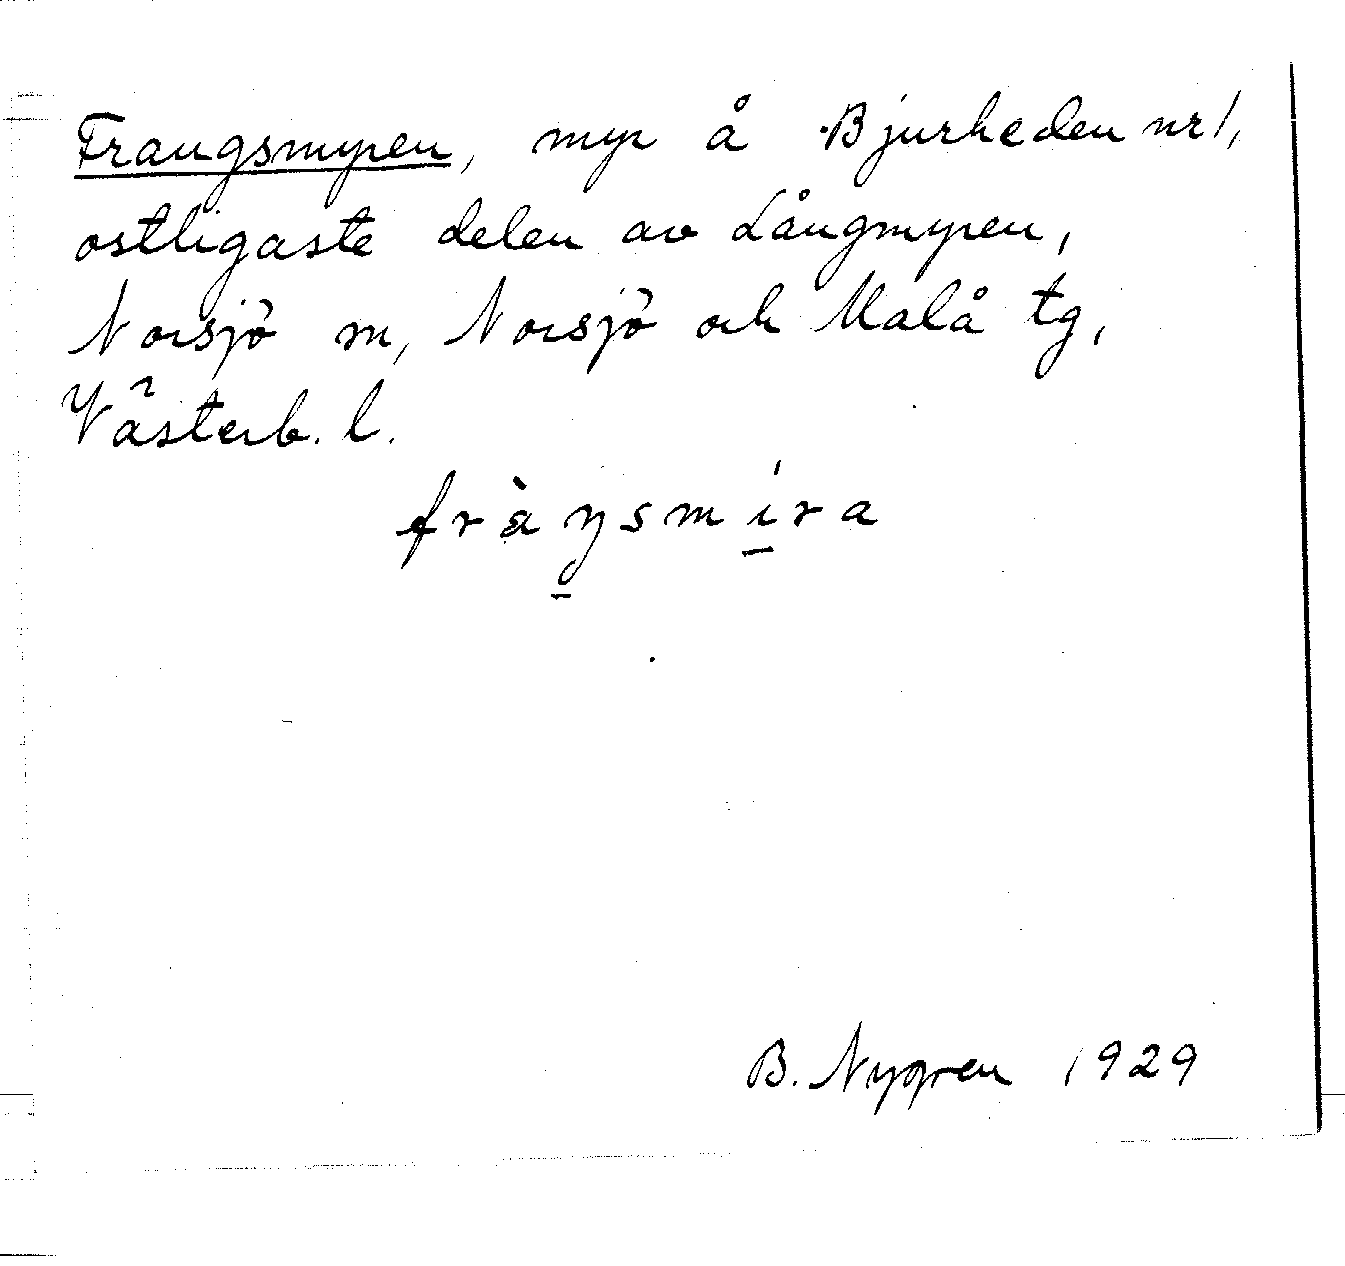 Frangsmyren, myr å Bjurheden nr 1,
ostligaste delen av Långmyren,
Norsjö sn, Norsjö och Malå tg,
Västerb. l.
fràŋsmíra
B. Nygren 1929